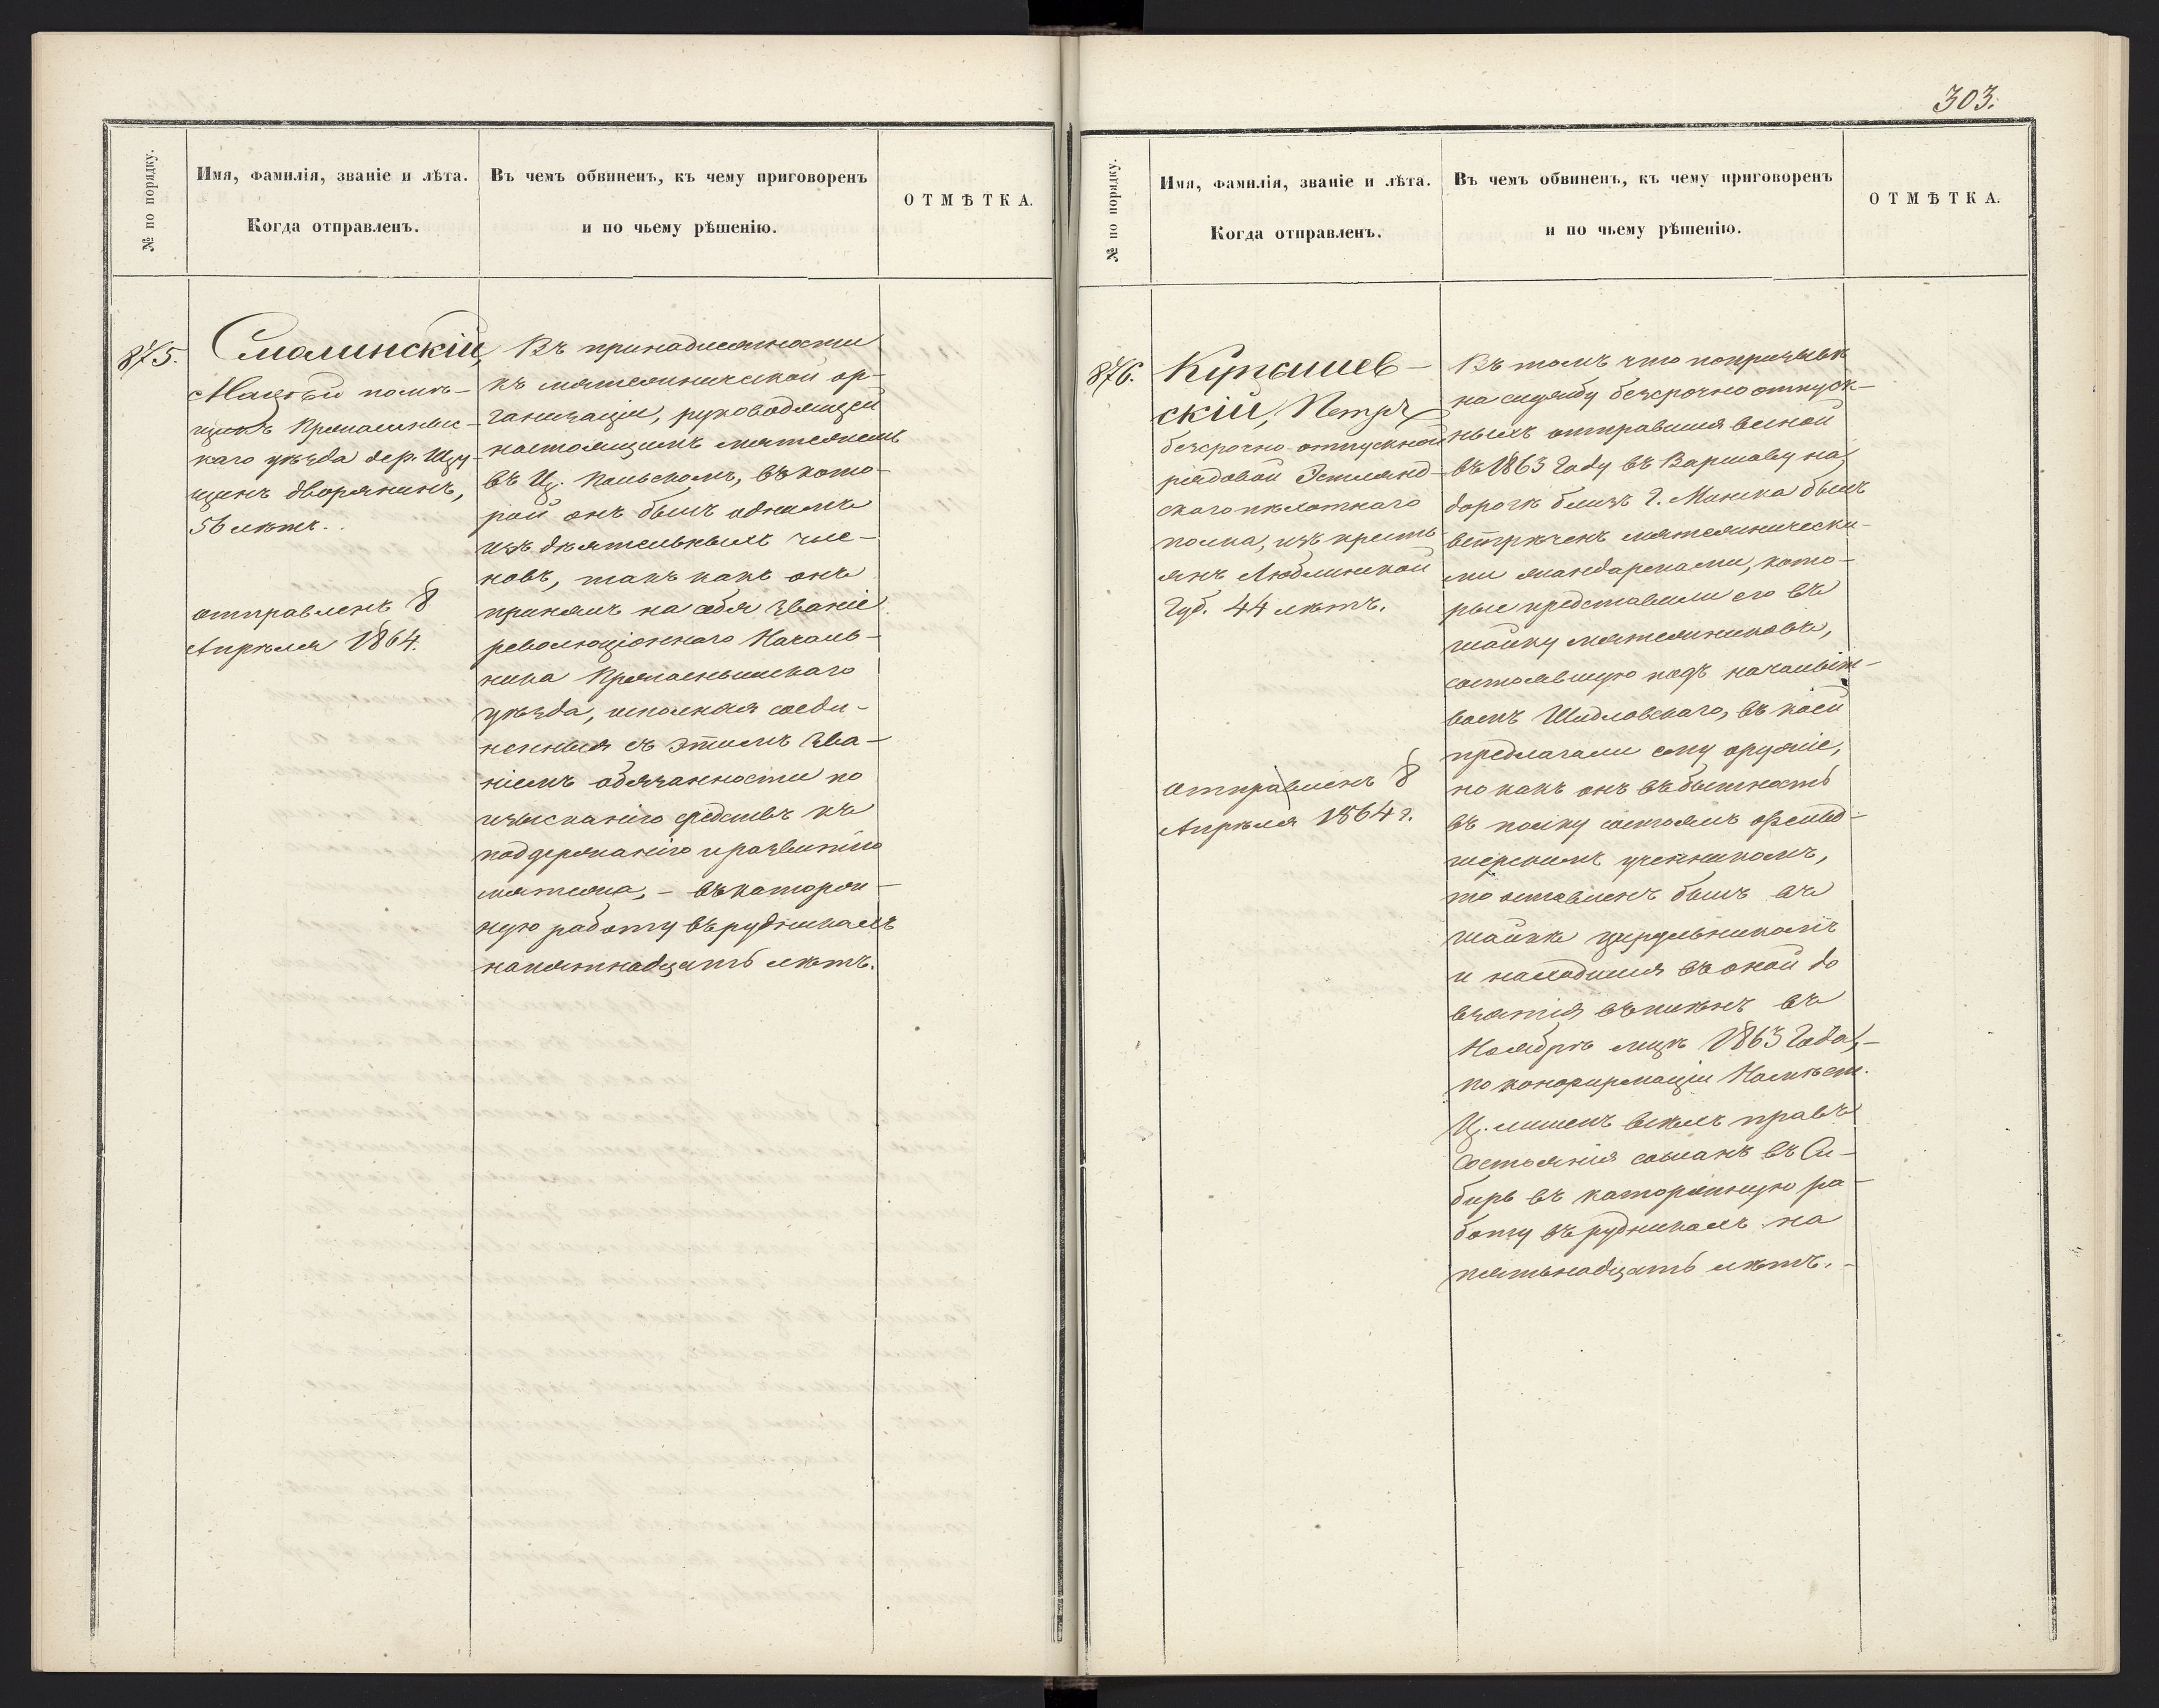 303.
№ по порядку.
Имя, фамилія, званіе и лѣта.
Когда отправленъ.
Въ чемъ обвиненъ, къ чему приговоренъ
и по чьему рѣшенію.
ОТМѢТКА.
875.
Смолинскій,
Матвѣй помѣ-
щикъ
каго уѣзда дер.
дворянинъ,
56 лѣтъ.
отправленъ 8
Апрѣля 1864.
Въ принадлежности
къ мятежнической ор-
ганизаціи, руководящей
настоящимъ мятежемъ
въ Ц. Польскомъ, въ кото-
рой онъ былъ однимъ
изъ дѣятельныхъ чле-
новъ, такъ какъ онъ
принялъ на себя званіе
революціоннаго Началь-
ника
уѣзда, исполняя соеди-
ненныя съ этимъ зва-
ніемъ обязанности по
изысканію средствъ къ
поддержанію и развитію
мятежа, – въ каторж-
ную работу въ рудникахъ
на пятнадцать лѣтъ.
№ по порядку.
Имя, фамилія, званіе и лѣта.
Когда отправленъ.
Въ чемъ обвиненъ, къ чему приговоренъ
и по чьему рѣшенію.
ОТМѢТКА.
876.
скій, Петръ
безсрочно отпускной
рядовой Эстлянд-
скаго пѣхотнаго
полка, изъ кресть-
янъ Люблинской
Губ. 44 лѣтъ.
отправленъ 8
Апрѣля 1864 г.
Въ томъ что по призывѣ
на службу безсрочно отпуск-
ныхъ отправился весной
въ 1863 году въ Варшаву на
дорогѣ близъ г. Минска былъ
встрѣченъ мятежнически-
ми жандармами, кото-
рые представили его въ
шайку мятежниковъ,
состоявшую подъ начальст-
вомъ Шидловскаго, въ коей
предлагали ему оружіе,
но какъ онъ въ бытность
въ полку состоялъ фельд-
шерскимъ ученикомъ,
то оставленъ былъ въ
шайкѣ цирульникомъ
и находился въ оной до
взятія въ плѣнъ въ
Ноябрѣ мцѣ 1863 года, –
по конфирмаціи Намѣст.
Ц. лишенъ всѣхъ правъ
состоянія сосланъ въ Си-
бирь въ каторжную ра-
боту въ рудникахъ на
пятьнадцать лѣтъ. –